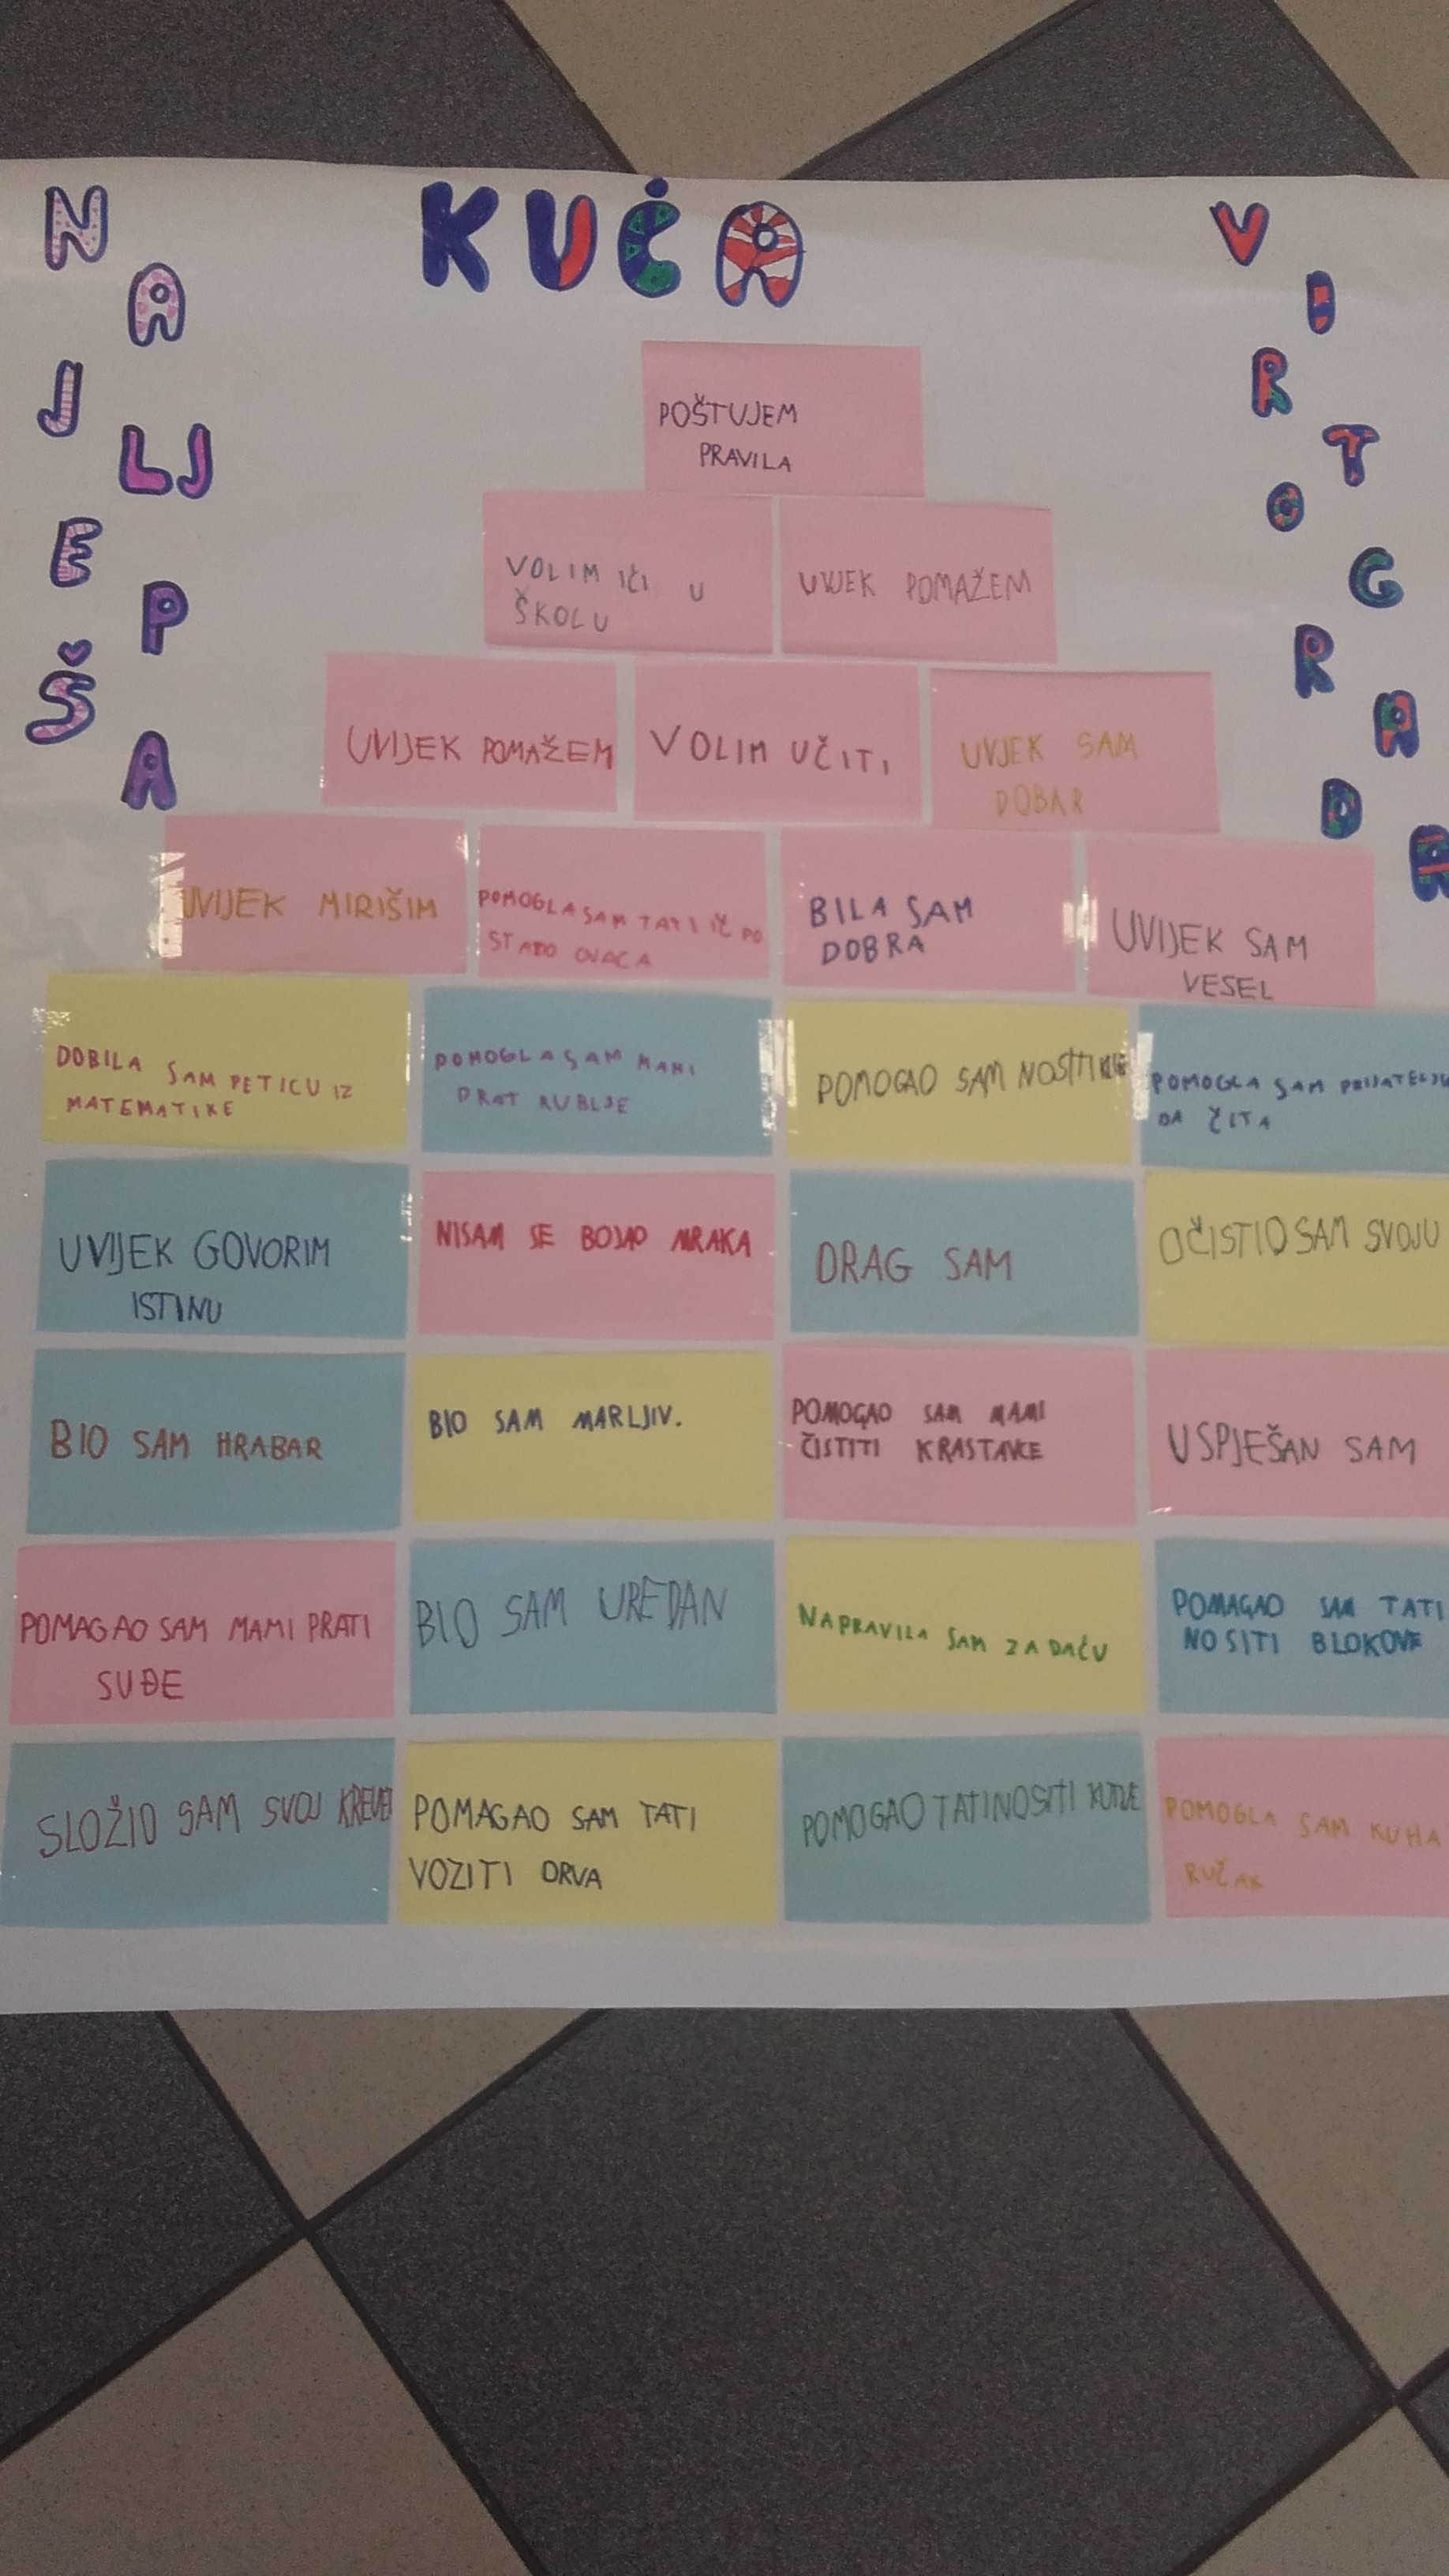 NAJLJEPŠA
KUĆA
VIRTOGRADA
POŠTUJEM
PRAVILA
VOLIM IČI U
ŠKOLU
UVJEK POMAŽEM
UVIJEK POMAŽEM
VOLIM UČITI
UVJEK SAM
DOBAR
UVIJEK MIRIŠIM
POMOGLA SAM TATI IČ PO
STADO OVACA
BILA SAM
DOBRA
UVIJEK SAM
VESEL
DOBILA SAM PETICU IZ
MATEMATIKE
POMOGLA SAM MAMI
PRAT RUBLJE
POMOGAO SAM NOSITI
POMOGLA SAM PRIJATELJU
DA ČITA
UVIJEK GOVORIM
ISTINU
NISAM SE BOJAO MRAKA
DRAG SAM
OČISTIO SAM SVOJU
BIO SAM HRABAR
BIO SAM MARLJIV.
POMOGAO SAM MAMI
ČISTITI KRASTAVCE
USPJEŠAN SAM
POMAGAO SAM MAMI PRATI
SUĐE
BIO SAM UREDAN
NAPRAVILA SAM ZADAĆU
POMAGAO SAM TATI
NOSITI BLOKOVE
SLOŽIO SAM SVOJ KREVET
POMAGAO SAM TATI
VOZITI DRVA
POMOGAO TATI NOSITI
POMOGLA SAM KUHA
RUČAK